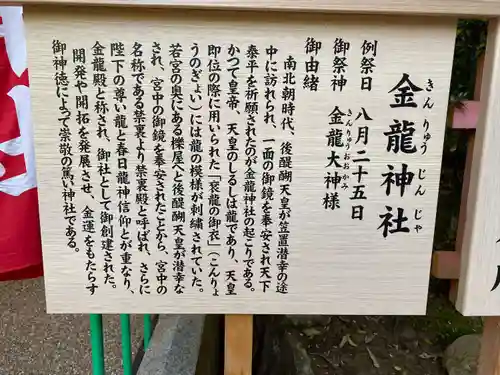 きんりゅうじんじゃ
金龍神社
例祭日　八月二十五日
きんりゅうおおかみ
御祭神　金龍大神様
御由緒
南北朝時代、後醍醐天皇が笠置潜幸の途
中に訪れられ、一面の御鏡を奉安され天下
泰平を祈願されたのが金龍神社の起こりである。
かつて皇帝、天皇のしるしは龍であり、天皇
即位の際に用いられた「袞龍の御衣」（こんりょ
うのぎょい）には龍の模様が刺繍されていた。
若宮の奥にある櫟屋へと後醍醐天皇が潜幸な
され、宮中の御鏡を奉安されたことから、宮中の
名称である禁裏より禁裏殿と呼ばれ、さらに
陛下の尊い龍と春日龍神信仰とが重なり、
金龍殿と称され、御社として御創建された。
開発や開拓を発展させ、金運をもたらす
御神徳によって崇敬の篤い神社である。